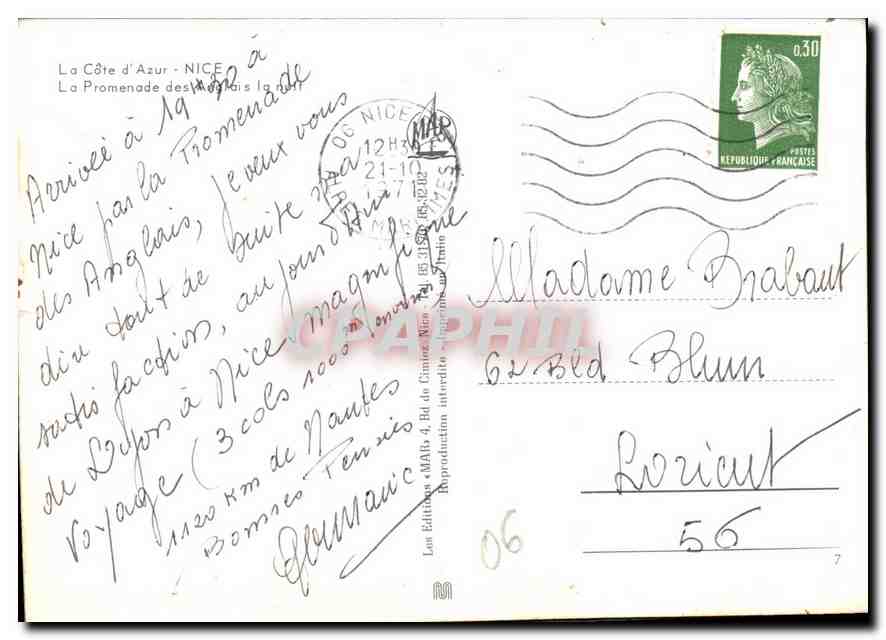 La Côte d'Azur - NICE
La Promenade des Anglais la nuit
Arrivée à 19 h 30 à
Nice par la Promenade
des Anglais, je veux vous
dire tout de suite ma
satisfaction, au jour d'hui
de Dijon à Nice magnifique
voyage (3 cols 1000 m environ)
1120 km de Nantes
Bonnes Pensées
Germaine
06 NICE
12H30
21-10
1971
MAR
Les Editions «MAR» 4, Bd de Cimiez Nice - Tél.
Reproduction interdite - Imprimé en Italie
0,30
POSTES
REPUBLIQUE FRANÇAISE
Madame Brabant
62 Bld Blum
Lorient
56
06
7
CPAPHIL